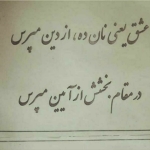 عشق یعنی نان ده، از دین مپرس
در مقام بخشش از آیین مپرس